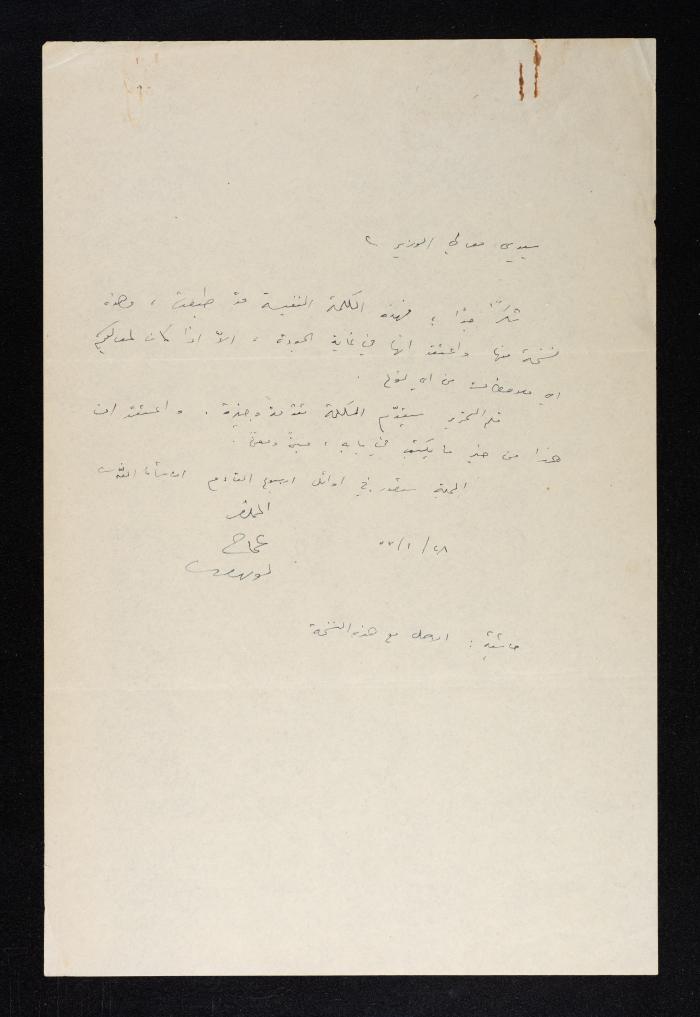 سيدي معالي الوزير ،
شكراً جدّاً ، فهذه الكلمة النفيسة قد طبعت ، وهذه
نسخة منها واعتقد انها في غاية الجودة ، الاّ اذا كان لمعاليكم
اي ملاحظات من اي نوع .
قلم التحرير سيقدّم الكلمة تقدمة وجيزة . واعتقد ان
هذا من خير ما يكتب في بابه ، مبنىً ومعنىً .
المجلة ستصدر في اوائل اسبوع القادم ان شاء الله
المخلص
٢٨ / ١ /
حاشية : الاصل مع هذه النسخة